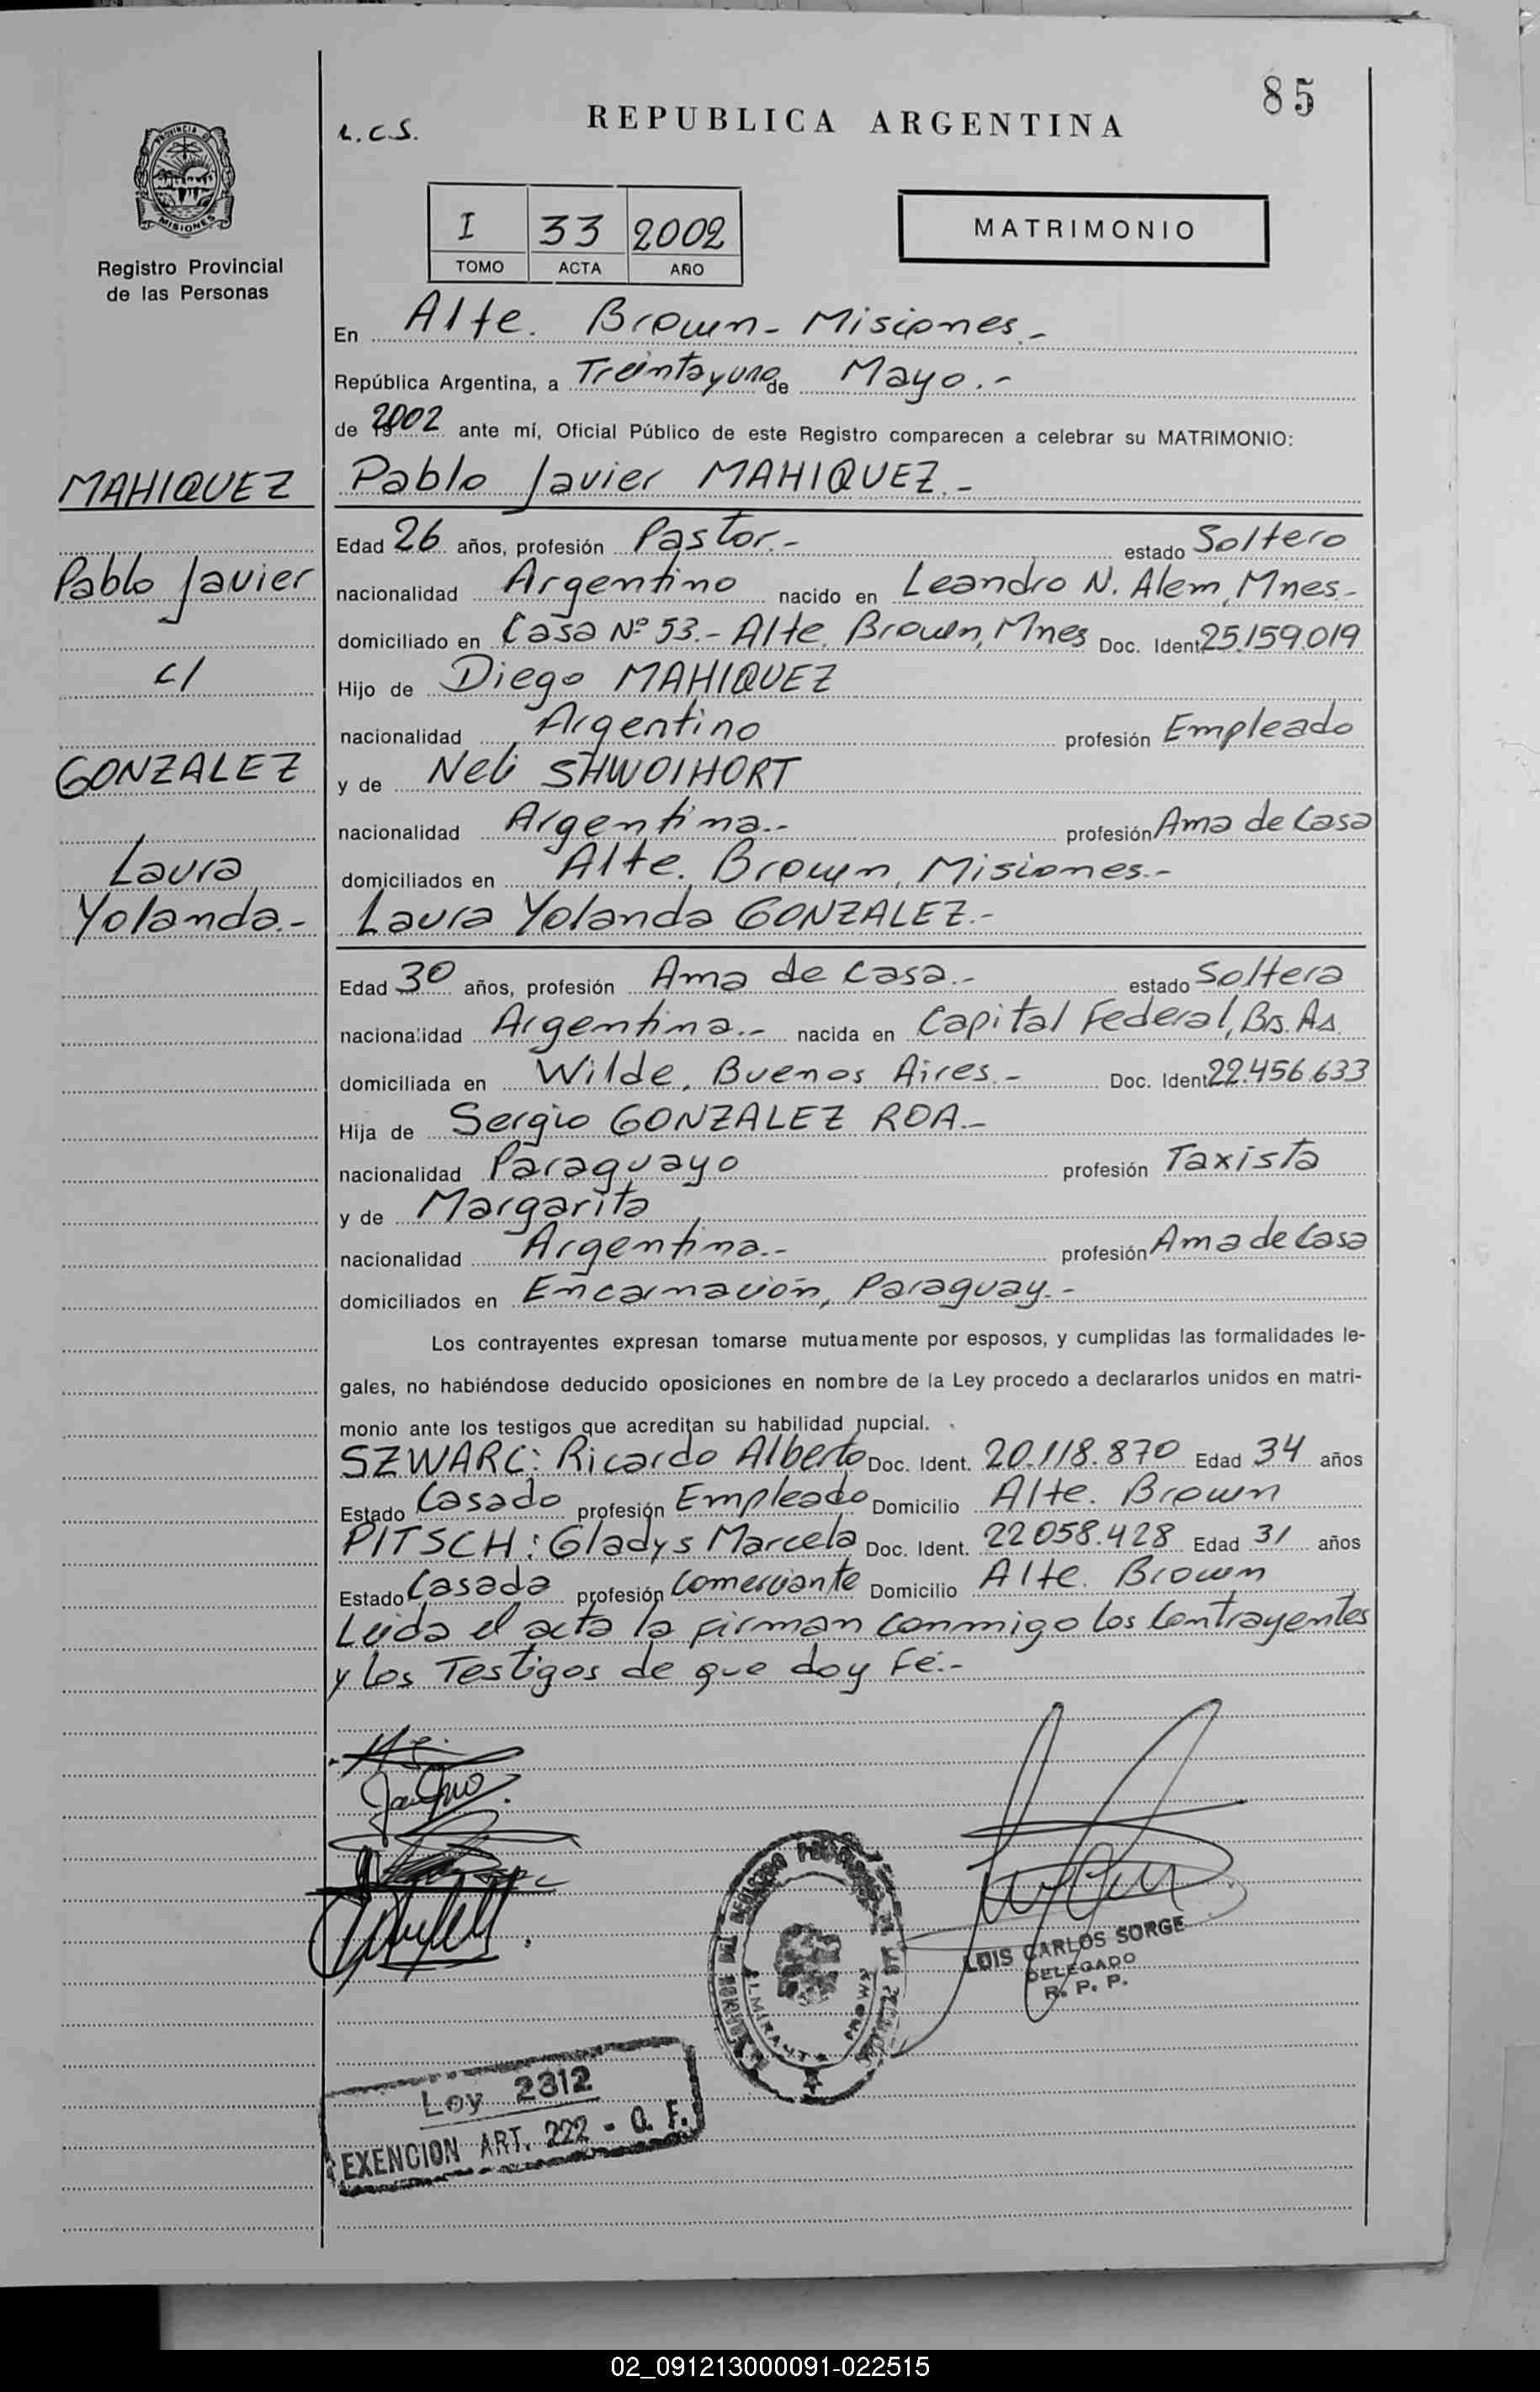 85
L.C.S.
REPUBLICA ARGENTINA
PROVINCIA DE
MISIONES
Registro Provincial
de las Personas
I 33 2002
TOMO ACTA AÑO
MATRIMONIO
En Alte. Brown - Misiones.-
República Argentina, a Treintayuno de Mayo.-
de 2002 ante mí, Oficial Público de este Registro comparecen a celebrar su MATRIMONIO:
MAHIQUEZ
Pablo Javier
c/
GONZALEZ
Laura
Yolanda.-
Pablo Javier MAHIQUEZ.-
Edad 26 años, profesión Pastor.- estado Soltero
nacionalidad Argentino nacido en Leandro N. Alem, Mnes.-
domiciliado en Casa Nº 53.- Alte. Brown, Mnes Doc. Ident. 25.159.019
Hijo de Diego MAHIQUEZ
nacionalidad Argentino profesión Empleado
y de Neli SHWOIHORT
nacionalidad Argentina.- profesión Ama de Casa
domiciliados en Alte. Brown, Misiones.-
Laura Yolanda GONZALEZ.-
Edad 30 años, profesión Ama de Casa.- estado Soltera
nacionalidad Argentina.- nacida en Capital Federal, Bs. As.
domiciliada en Wilde, Buenos Aires.- Doc. Ident. 22.456.633
Hija de Sergio GONZALEZ ROA.-
nacionalidad Paraguayo profesión Taxista
y de Margarita
nacionalidad Argentina.- profesión Ama de Casa
domiciliados en Encarnación, Paraguay.-
Los contrayentes expresan tomarse mutuamente por esposos, y cumplidas las formalidades le-
gales, no habiéndose deducido oposiciones en nombre de la Ley procedo a declararlos unidos en matri-
monio ante los testigos que acreditan su habilidad nupcial.
SZWARC: Ricardo Alberto Doc. Ident. 20.118.870 Edad 34 años
Estado Casado profesión Empleado Domicilio Alte. Brown
PITSCH: Gladys Marcela Doc. Ident. 22.058.428 Edad 31 años
Estado Casada profesión Comerciante Domicilio Alte. Brown
Leida el acta la firman conmigo los Contrayentes
y los Testigos de que doy Fé.-
ALMIRANTE BROWN
LUIS CARLOS SORGE
DELEGADO
R. P. P.
Ley 2312
EXENCION ART. 222 - Q. F.
02_091213000091-022515